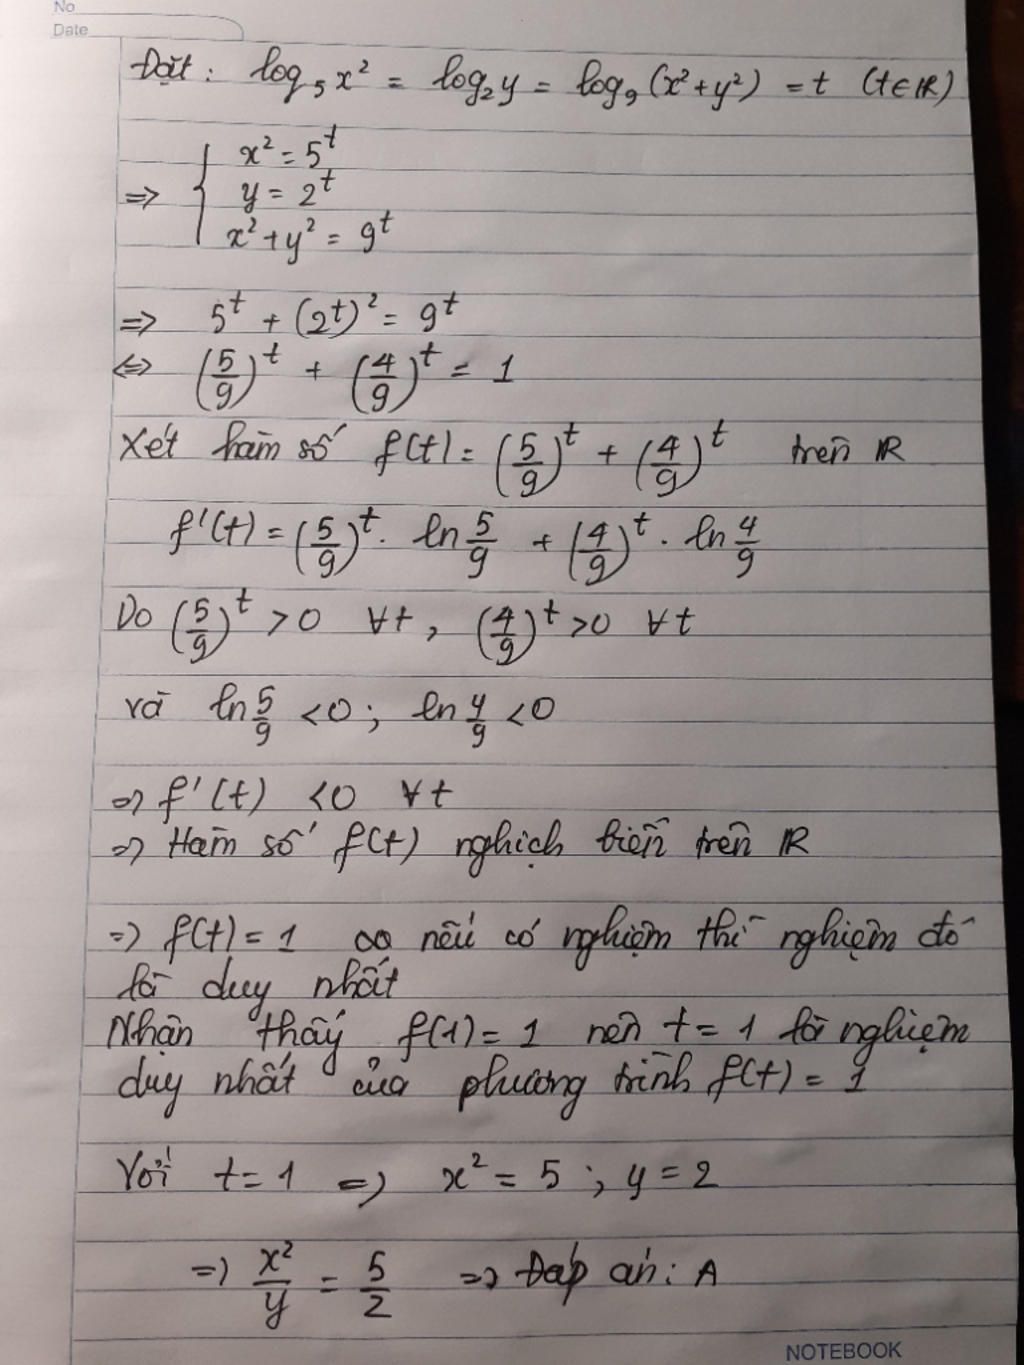 No
Date
Đặt : log₅x² = log₂y = log₉(x²+y²) = t (t∈ℝ)
x² = 5ᵗ
=> { y = 2ᵗ
x²+y² = 9ᵗ
=> 5ᵗ + (2ᵗ)² = 9ᵗ
<=> (5/9)ᵗ + (4/9)ᵗ = 1
Xét hàm số f(t) = (5/9)ᵗ + (4/9)ᵗ trên ℝ
f'(t) = (5/9)ᵗ . ln 5/9 + (4/9)ᵗ . ln 4/9
Do (5/9)ᵗ > 0 ∀t , (4/9)ᵗ > 0 ∀t
và ln 5/9 < 0 ; ln 4/9 < 0
=> f'(t) < 0 ∀t
=> Hàm số f(t) nghịch biến trên ℝ
=> f(t) = 1 nếu có nghiệm thì nghiệm đó
là duy nhất
Nhận thấy f(1) = 1 nên t = 1 là nghiệm
duy nhất của phương trình f(t) = 1
Với t = 1 => x² = 5 ; y = 2
=> x²/y = 5/2 => Đáp án : A
NOTEBOOK